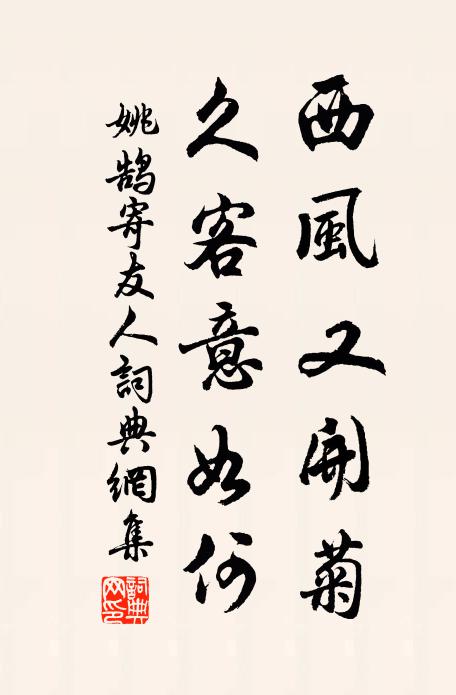 西風又開菊
久客意如何
姚鵠寄友人詞典網集
詞典網印